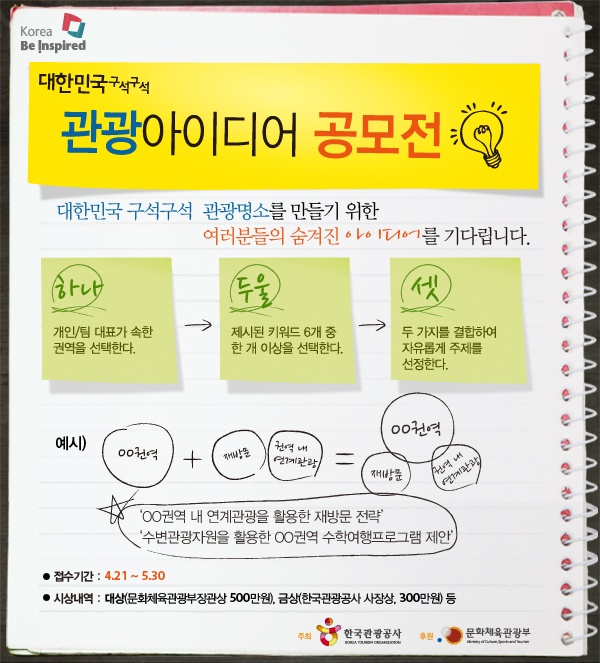 Korea
Be Inspired
대한민국 구석구석
관광아이디어 공모전
대한민국 구석구석 관광명소를 만들기 위한
여러분들의 숨겨진 아이디어를 기다립니다.
하나
개인/팀 대표가 속한
권역을 선택한다.
두울
제시된 키워드 6개 중
한 개 이상을 선택한다.
셋
두 가지를 결합하여
자유롭게 주제를
선정한다.
예시)
OO권역
+
재방문
권역 내
연계관광
=
OO권역
재방문
권역 내
연계관광
'OO권역 내 연계관광을 활용한 재방문 전략'
'수변관광자원을 활용한 OO권역 수학여행프로그램 제안'
● 접수기간 : 4.21 ~ 5.30
● 시상내역 : 대상(문화체육관광부장관상 500만원), 금상(한국관광공사 사장상, 300만원) 등
주최 한국관광공사
KOREA TOURISM ORGANIZATION
후원 문화체육관광부
Ministry of Culture, Sports and Tourism